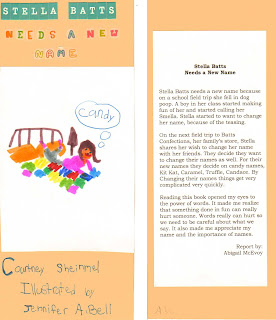 STELLA BATTS
NEEDS A NEW
NAME
Candy
Courtney Sheinmel
Illustrated by
Jennifer A. Bell
Stella Batts
Needs a New Name
Stella Batts needs a new name because
on a school field trip she fell in dog
poop. A boy in her class started making
fun of her and started calling her
Smella. Stella started to want to change
her name, because of the teasing.
On the next field trip to Batts
Confections, her family's store, Stella
shares her wish to change her name
with her friends. They decide they want
to change their names as well. For their
new names they decide on candy names,
Kit Kat, Caramel, Truffle, Candace. By
Changing their names things get very
complicated very quickly.
Reading this book opened my eyes to
the power of words. It made me realize
that something done in fun can really
hurt someone. Words really can hurt so
we need to be careful about what we
say. It also made me appreciate my
name and the importance of names.
Report by:
Abigail McEvoy